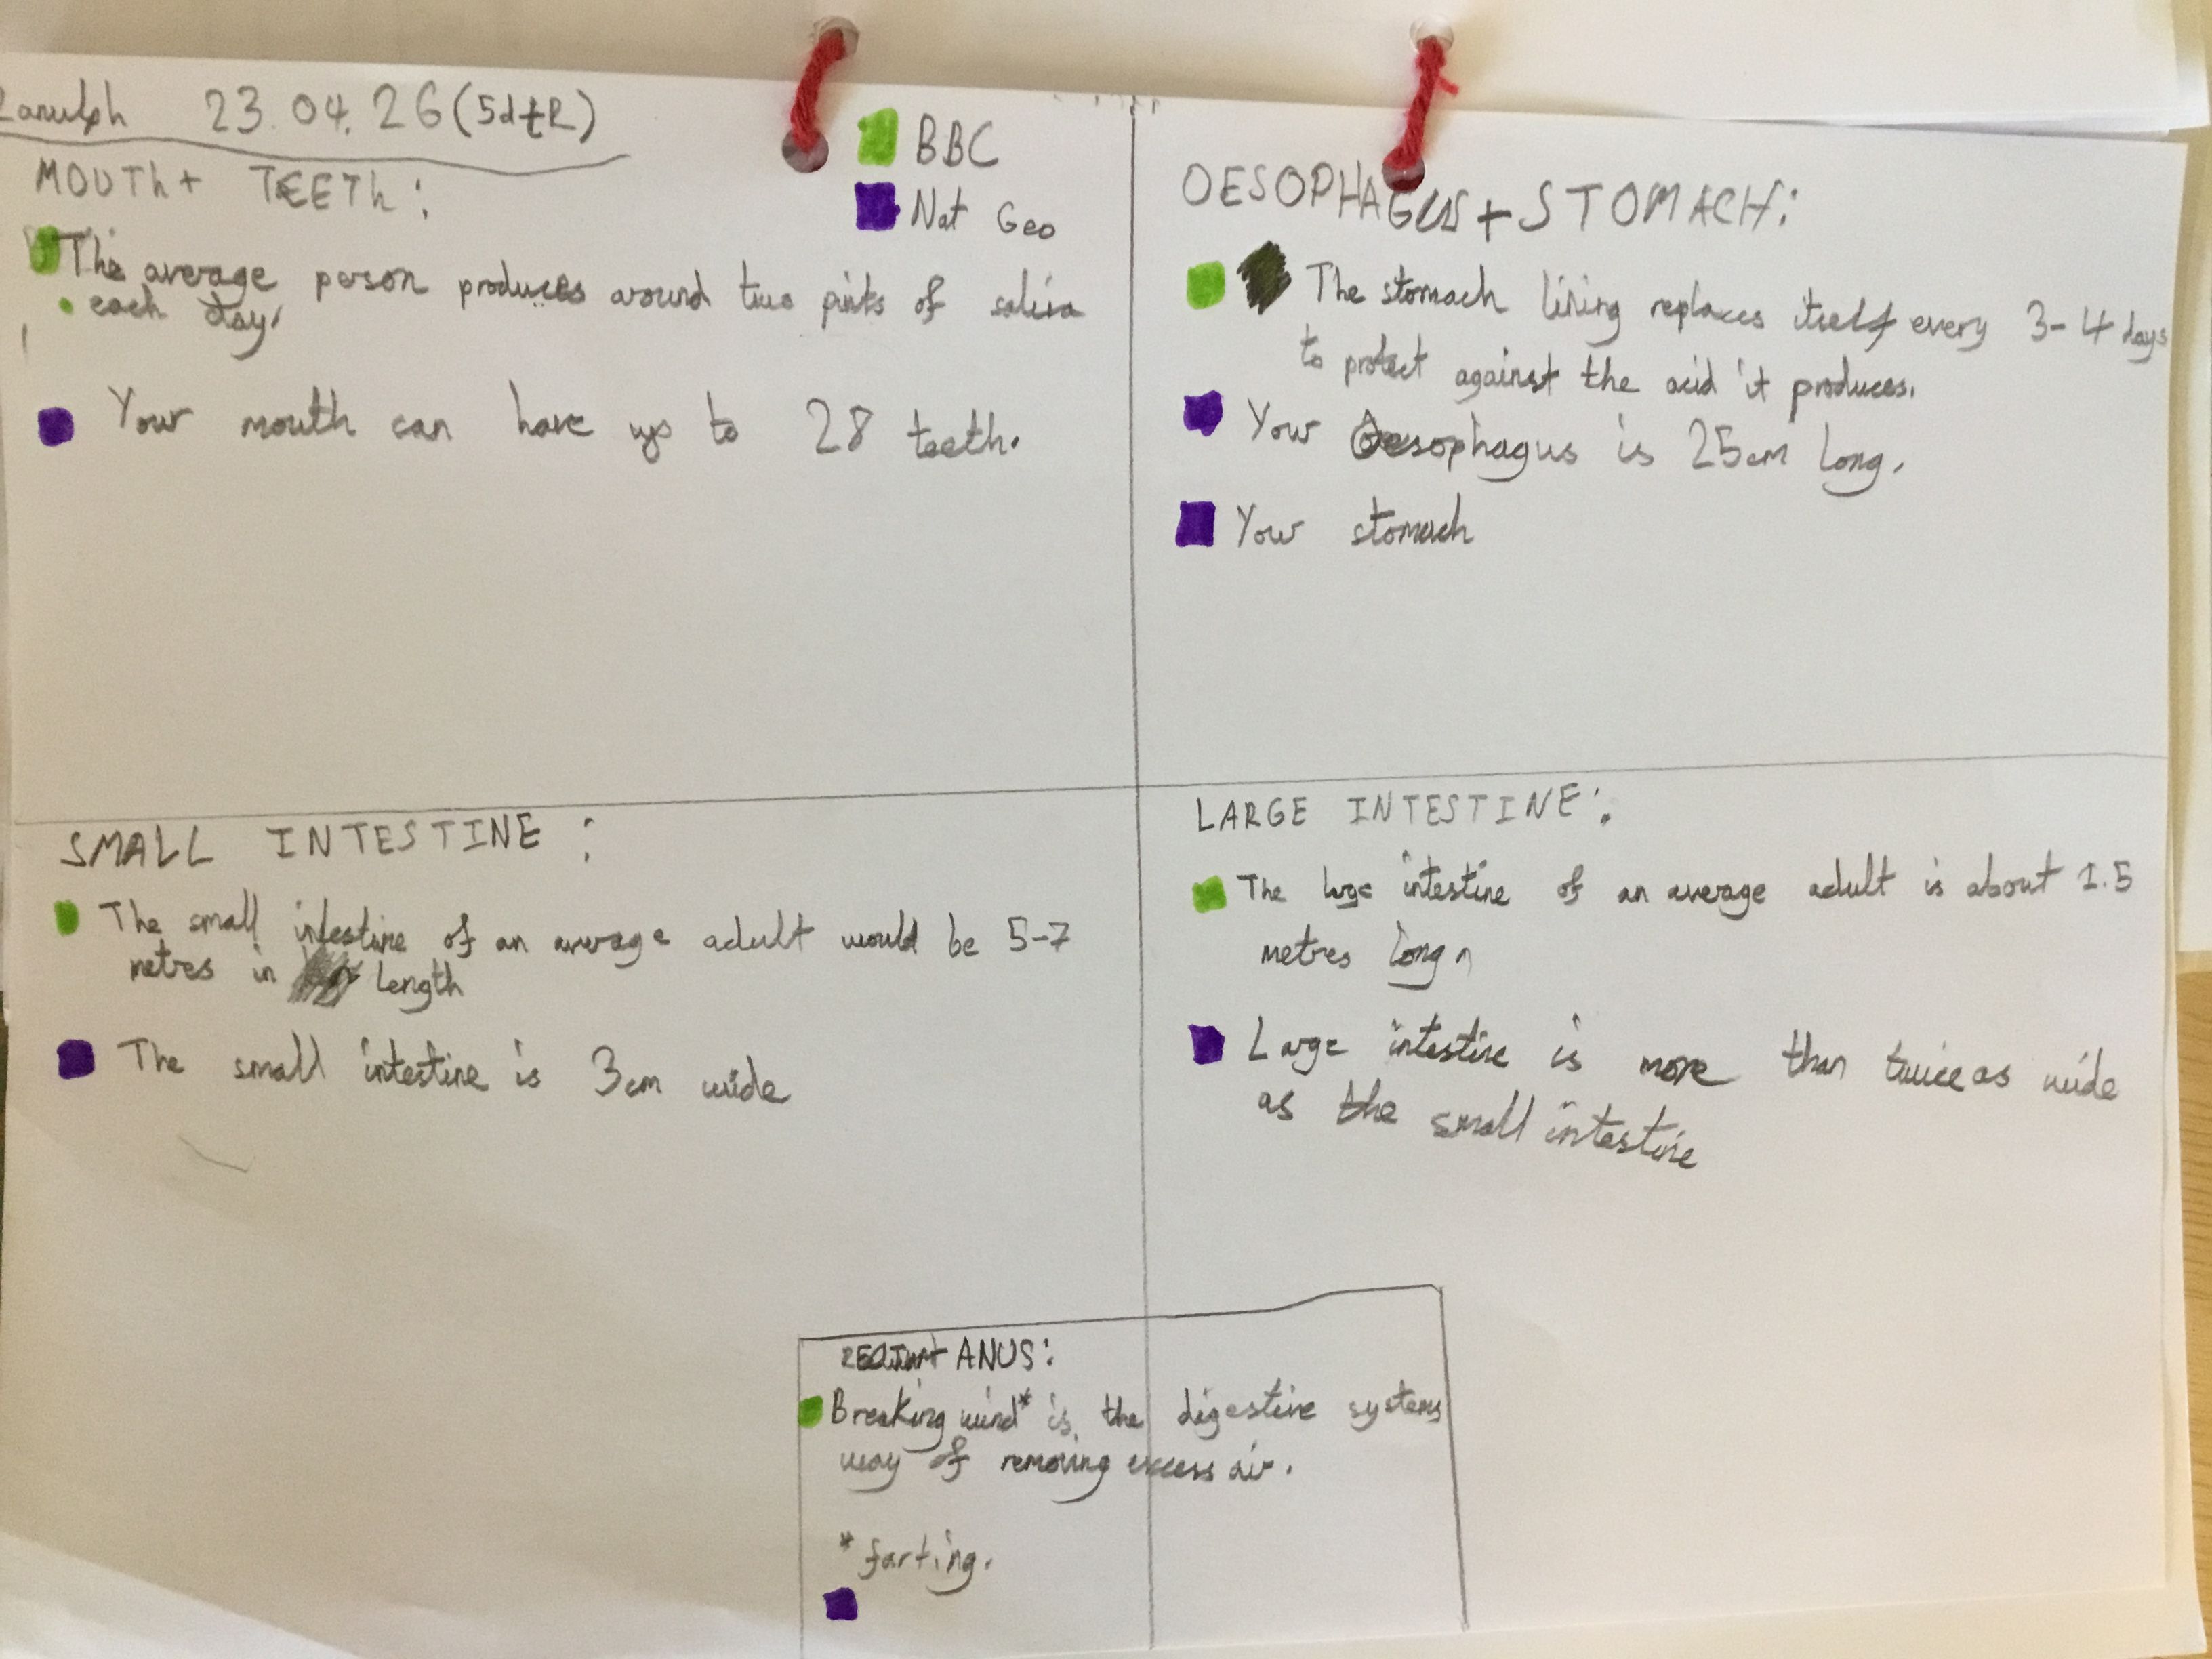 Ranulph 23.04.26 (5dtR)
BBC
Nat Geo
MOUTh + TEETh:
The average person produces around two pints of saliva
each day.
Your mouth can have up to 28 teeth.
OESOPHAGUS + STOMACH:
The stomach lining replaces itself every 3-4 days
to protect against the acid it produces.
Your Oesophagus is 25cm long.
Your stomach
SMALL INTESTINE:
The small intestine of an average adult would be 5-7
metres in length
The small intestine is 3cm wide
LARGE INTESTINE:
The large intestine of an average adult is about 1.5
metres long.
Large intestine is more than twice as wide
as the small intestine
ANUS:
Breaking wind* is the digestive systems
way of removing excess air.
*farting.